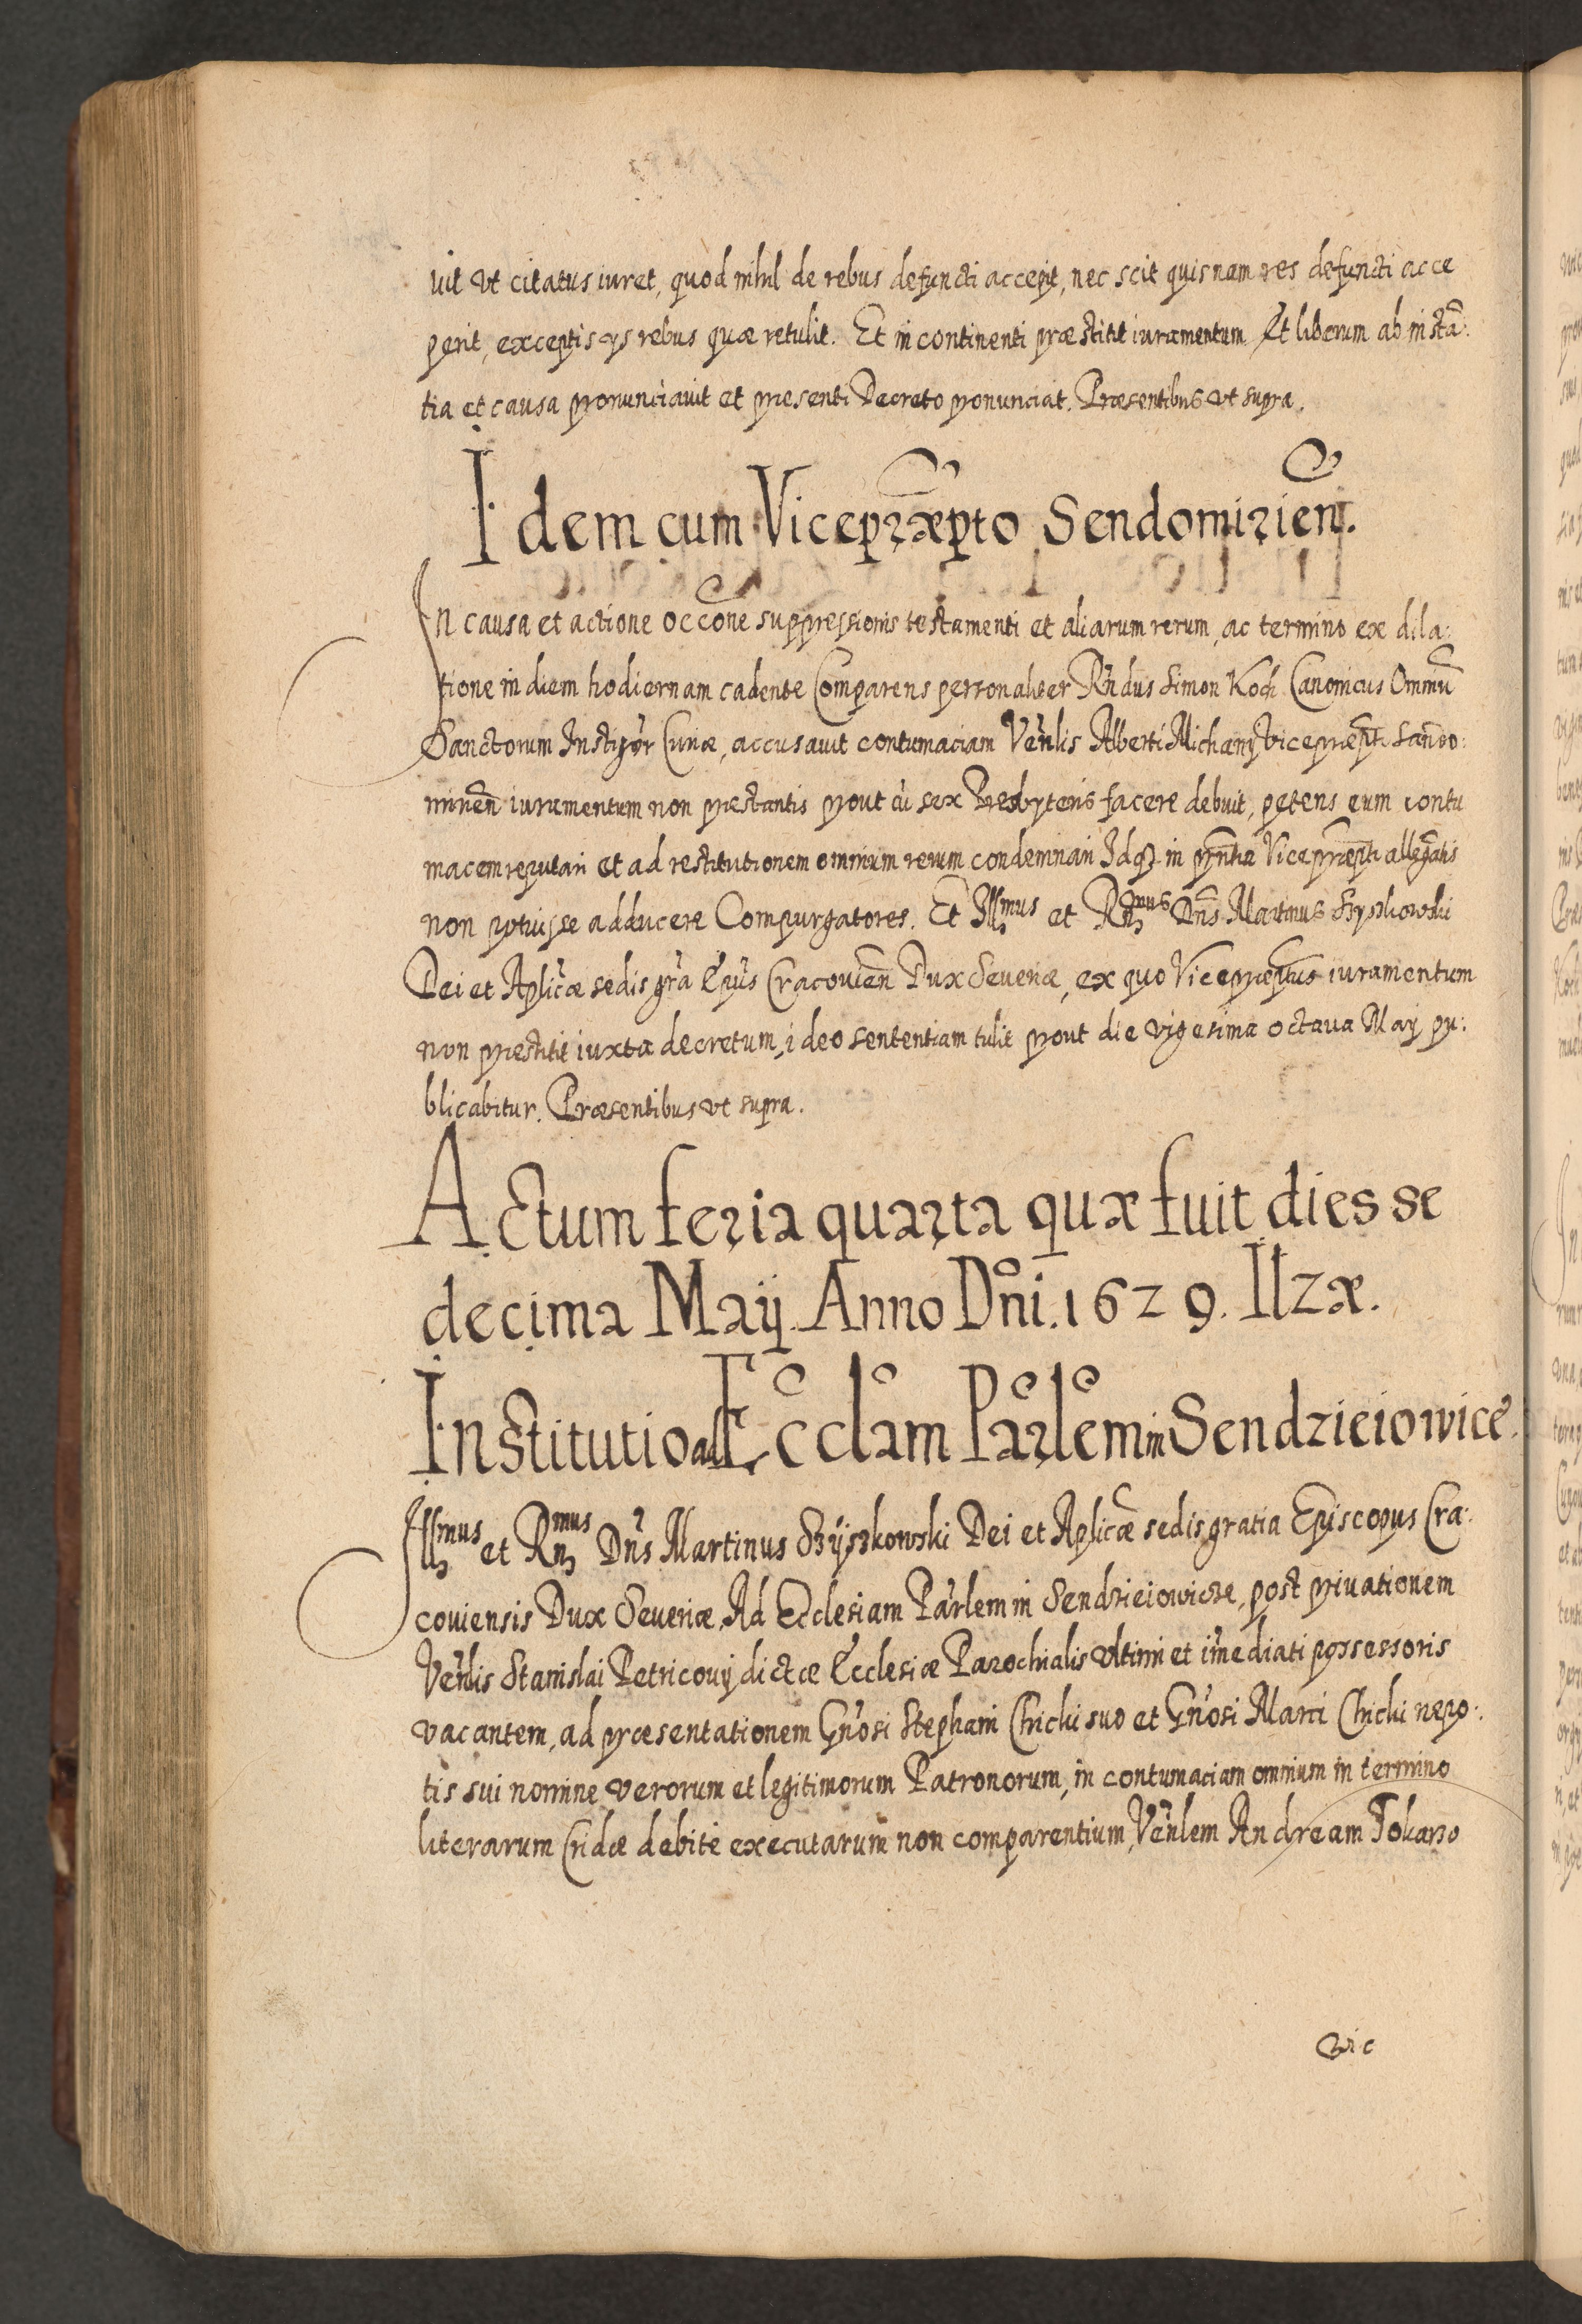 uit vt citatus iuret, quod nihil de rebus defuncti accepit, nec scit quisnam res defuncti acce
perit, exceptis ijs rebus quæ retulit. Et in continenti præstitit iuramentum Et liberum ab instã:
tia et causa pronunciauit et præsenti Decreto pronunciat. Præsentibus vt supra.
Idem cum Vicepræpto Sendomirien̄.
In causa et actione occõne suppressionis testamenti et aliarum rerum, ac termino ex dila:
tione in diem hodiernam cadente Comparens personaliter Rñdus Simon Koch Canonicus Omniũ
Sanctorum Instigãr Curiæ, accusauit contumaciam Vẽnlis Alberti Michany vicepræpti Sando:
mirien̄ iuramentum non præstantis prout cũ sex Presbyteris facere debuit, petens eum contu
macem reputari et ad restitutionem omnium rerum condemnari Idq in pñtia Vicepræpti allegãtis
non potuisse adducere Compurgatores. Et Illmus et Rñmus Dñs Martinus Szyszkowski
Dei et Aplicæ sedis grã Epũs Cracovien̄ Dux Seueriæ, ex quo Vicepræptus iuramentum
non præstitit iuxta decretum, ideo sententiam tulit prout die vigesima octaua Maij pu:
blicabitur. Præsentibus vt supra.
Actum feria quarta quæ fuit dies se
decima Maij. Anno Dñi. 1629. Ilzæ.
Institutio ad Ecclãm Pãrlẽm in Sendzieiowicẽ.
Illmus et Rñmus Dñs Martinus Szÿszkowski Dei et Aplicæ sedis gratia Episcopus Cra:
couiensis Dux Seueriæ, Ad Ecclesiam Pãrlem in Sendzieiowicze, post priuationem
Vẽnlis Stanislai Petricouij dictæ Ecclesiæ Parochialis vltimi et imẽdiati possessoris
vacantem, ad præsentationem Gñosi Stephani Chichi suo et Gñosi Marci Chichi nepo:
tis sui nomine verorum et legitimorum Patronorum, in contumaciam omnium in termino
literarum Cridæ debitè executarum non comparentium, Vẽnlem Andream Tokarzo
wic